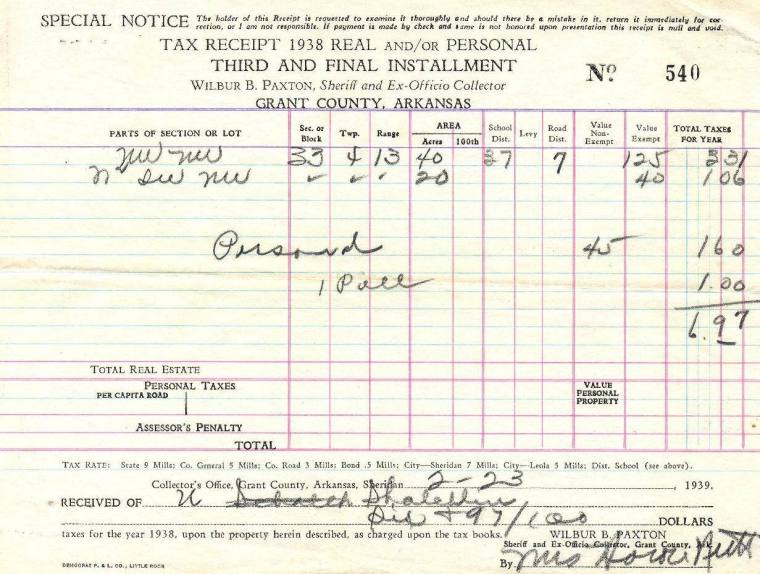 SPECIAL NOTICE The holder of this Receipt is requested to examine it thoroughly and should there be a mistake in it, return it immediately for cor-
rection, or I am not responsible. If payment is made by check and same is not honored upon presentation this receipt is null and void.
TAX RECEIPT 1938 REAL AND/OR PERSONAL
THIRD AND FINAL INSTALLMENT
Nº 540
WILBUR B. PAXTON, Sheriff and Ex-Officio Collector
GRANT COUNTY, ARKANSAS
PARTS OF SECTION OR LOT Sec. or Block Twp. Range AREA Acres 100th School Dist. Levy Road Dist. Value Non-Exempt Value Exempt TOTAL TAXES FOR YEAR
NW NW 33 4 13 40 27 7 125 3 31
N SW NW 20 40 1 06
Personal 45 1 60
1 Poll 1.00
6.97
TOTAL REAL ESTATE
PERSONAL TAXES
PER CAPITA ROAD
VALUE PERSONAL PROPERTY
ASSESSOR'S PENALTY
TOTAL
TAX RATE: State 9 Mills; Co. General 5 Mills; Co. Road 3 Mills; Bond .5 Mills; City—Sheridan 7 Mills; City—Leola 5 Mills; Dist. School (see above).
Collector's Office, Grant County, Arkansas, Sheridan 2-23, 1939.
RECEIVED OF
Six + 97/100 DOLLARS
taxes for the year 1938, upon the property herein described, as charged upon the tax books.
WILBUR B. PAXTON
Sheriff and Ex-Officio Collector, Grant County, Ark.
By Mrs
DEMOCRAT P. & L. CO., LITTLE ROCK